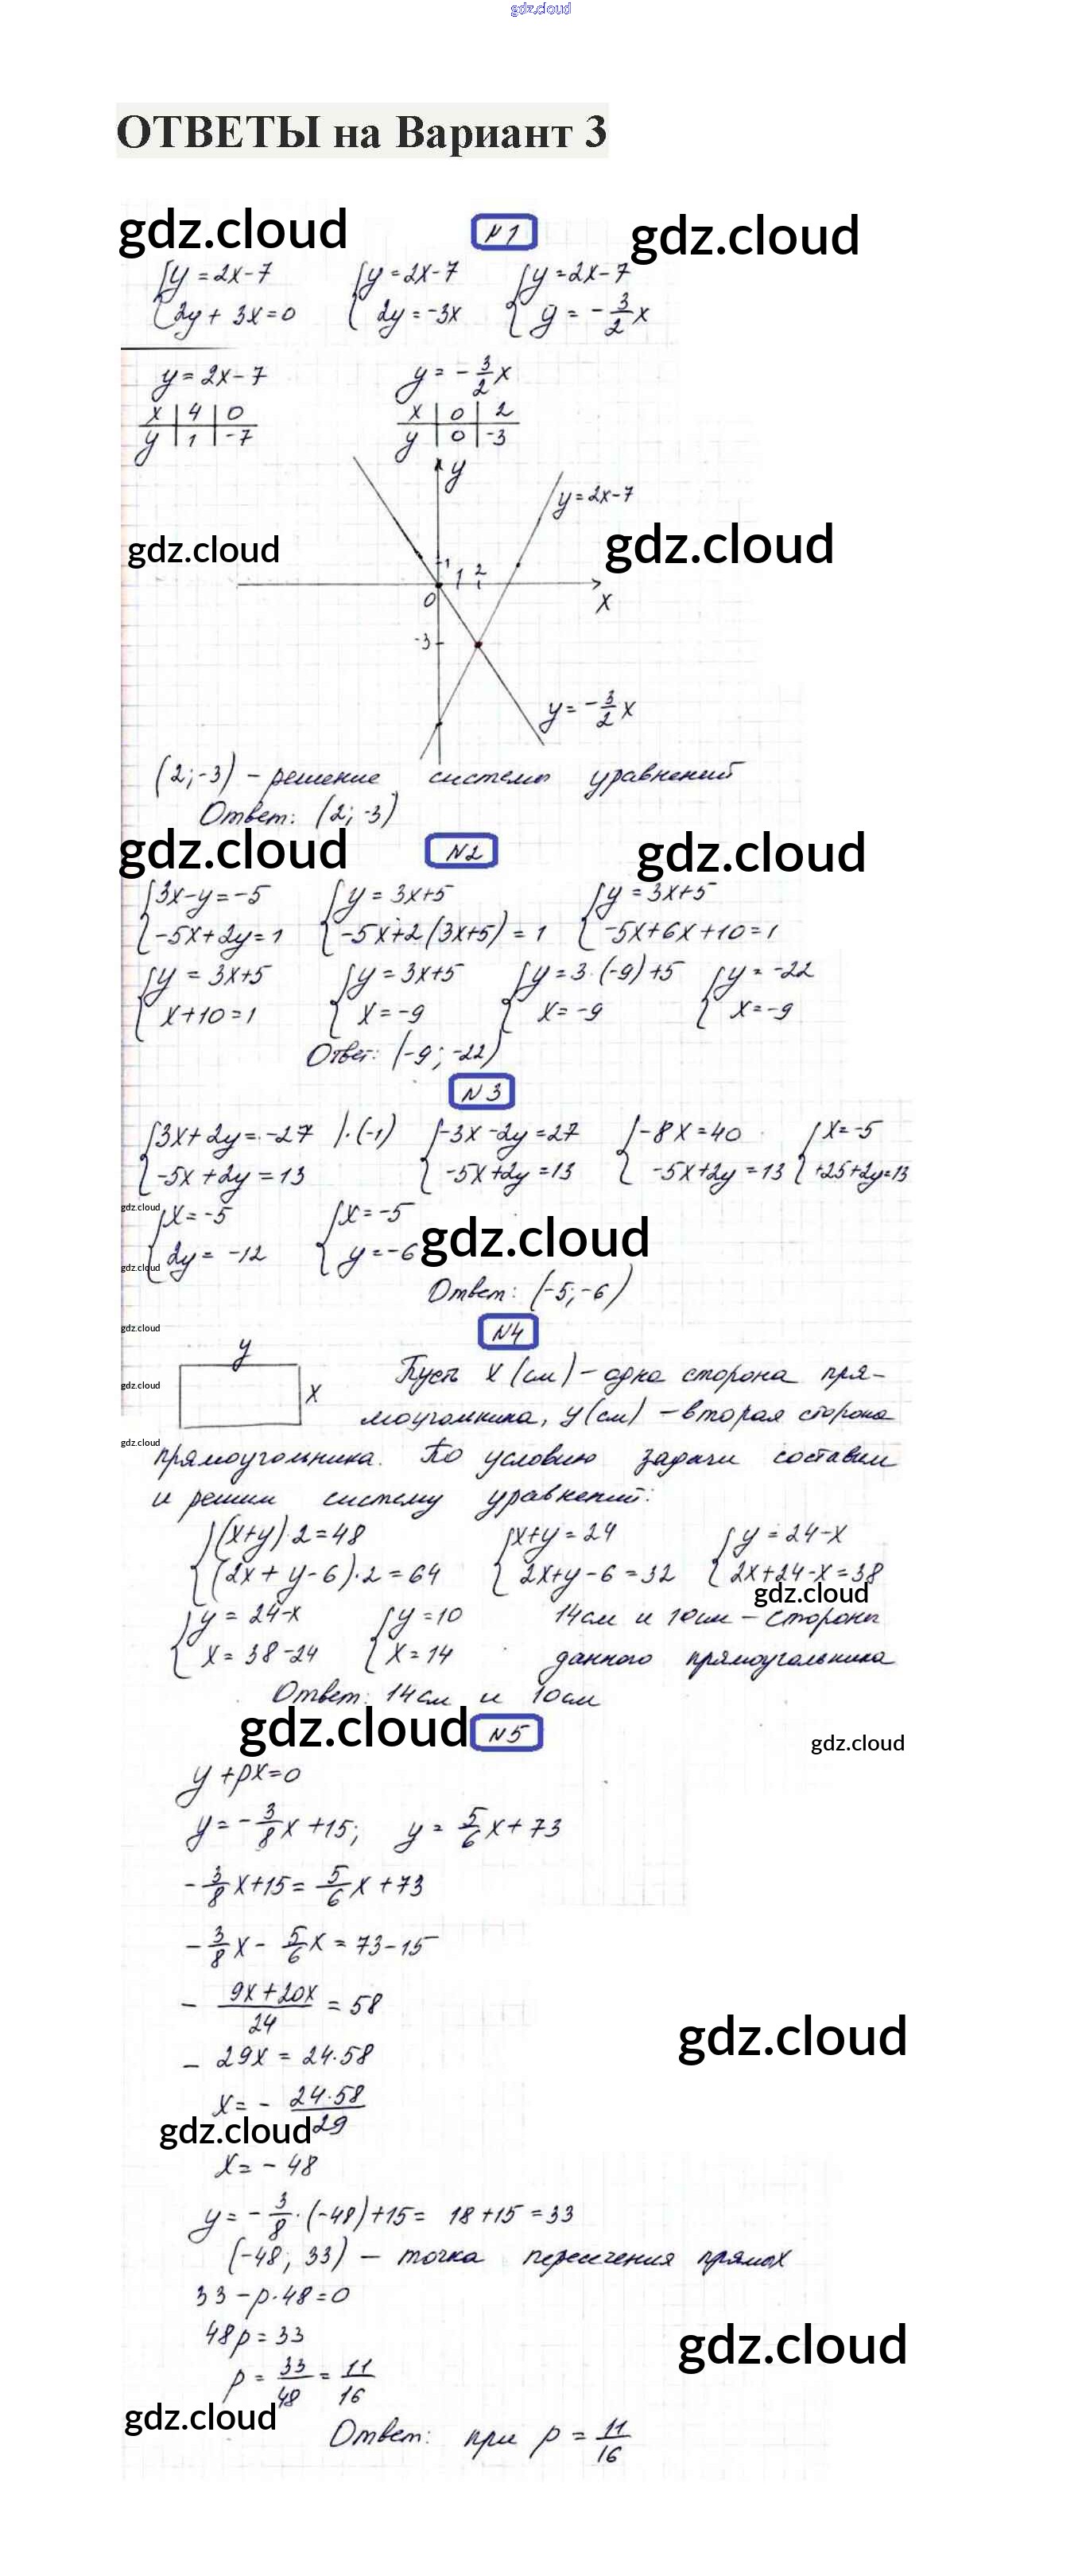 gdz.cloud
ОТВЕТЫ на Вариант 3
gdz.cloud №1 gdz.cloud
{y = 2x-7 {y = 2x-7 {y = 2x-7
{2y + 3x = 0 {2y = -3x {y = -3/2 x
y = 2x-7 y = -3/2 x
x | 4 | 0 x | 0 | 2
y | 1 | -7 y | 0 | -3
y
y = 2x-7
gdz.cloud gdz.cloud
1 1 2
0 x
-3
y = -3/2 x
(2; -3) - решение системы уравнений
Ответ: (2; -3)
gdz.cloud №2 gdz.cloud
{3x-y = -5 {y = 3x+5 {y = 3x+5
{-5x+2y = 1 {-5x+2(3x+5) = 1 {-5x+6x+10 = 1
{y = 3x+5 {y = 3x+5 {y = 3·(-9)+5 {y = -22
{x+10 = 1 {x = -9 {x = -9 {x = -9
Ответ: (-9; -22)
№3
{3x+2y = -27 |·(-1) {-3x-2y = 27 {-8x = 40 {x = -5
{-5x+2y = 13 {-5x+2y = 13 {-5x+2y = 13 {+25+2y = 13
gdz.cloud
{x = -5 {x = -5
gdz.cloud
{2y = -12 {y = -6
gdz.cloud
Ответ: (-5; -6)
gdz.cloud №4
y
gdz.cloud x Пусть x (см) - одна сторона пря-
моугольника, y (см) - вторая сторона
gdz.cloud
прямоугольника. По условию задачи составим
и решим систему уравнений:
{(x+y)·2 = 48 {x+y = 24 {y = 24-x
{(2x+y-6)·2 = 64 {2x+y-6 = 32 {2x+24-x = 38
gdz.cloud
{y = 24-x {y = 10 14 см и 10 см - стороны
{x = 38-24 {x = 14 данного прямоугольника
Ответ: 14 см и 10 см
gdz.cloud №5 gdz.cloud
y + px = 0
y = -3/8 x + 15; y = 5/6 x + 73
-3/8 x + 15 = 5/6 x + 73
-3/8 x - 5/6 x = 73-15
- (9x+20x)/24 = 58
gdz.cloud
- 29x = 24·58
x = - (24·58)/29
gdz.cloud
x = -48
y = -3/8·(-48)+15 = 18+15 = 33
(-48; 33) - точка пересечения прямых
33 - p·48 = 0
48p = 33
gdz.cloud
p = 33/48 = 11/16
gdz.cloud
Ответ: при p = 11/16